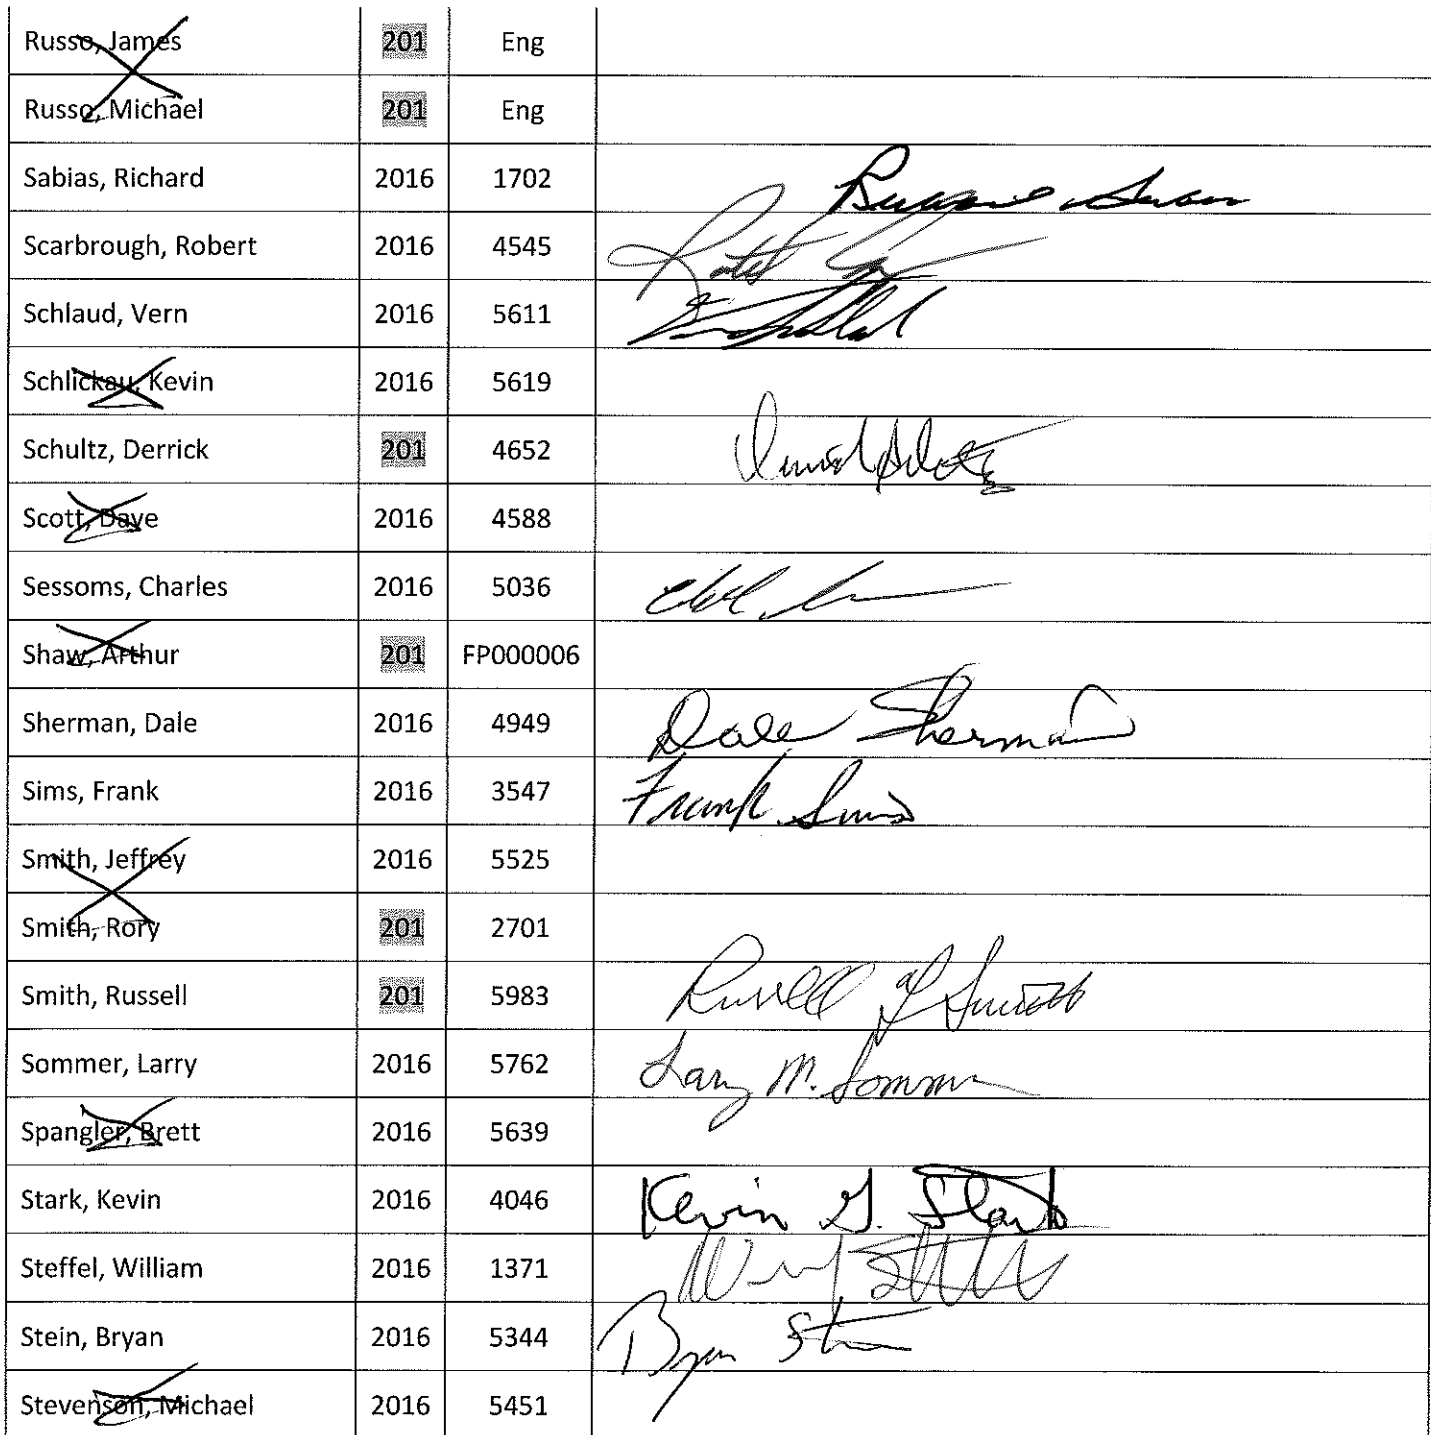 Russo, James 201 Eng
Russo, Michael 201 Eng
Sabias, Richard 2016 1702
Scarbrough, Robert 2016 4545
Schlaud, Vern 2016 5611
Schlickau, Kevin 2016 5619
Schultz, Derrick 201 4652
Scott, Dave 2016 4588
Sessoms, Charles 2016 5036
Shaw, Arthur 201 FP000006
Sherman, Dale 2016 4949 Dale Sherman
Sims, Frank 2016 3547 Frank Sims
Smith, Jeffrey 2016 5525
Smith, Rory 201 2701
Smith, Russell 201 5983 Russell Smith
Sommer, Larry 2016 5762 Larry M. Sommer
Spangler, Brett 2016 5639
Stark, Kevin 2016 4046 Kevin G. Stark
Steffel, William 2016 1371
Stein, Bryan 2016 5344 Bryan Stein
Stevenson, Michael 2016 5451